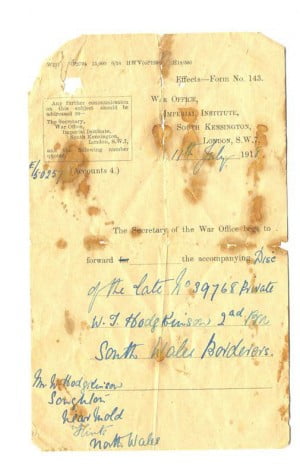 Effects—Form No. 143.
Any further communication
on this subject should be
addressed to—
The Secretary,
War Office,
Imperial Institute,
South Kensington,
London, S.W.7,
and the following number
quoted.
War Office,
Imperial Institute,
South Kensington,
London, S.W.7,
11th July 1918
E/
(Accounts 4.)
The Secretary of the War Office begs to
forward for the accompanying Disc
of the late No 39768 Private
W. J. Hodgkinson 2nd Btn
South Wales Borderers.
Mr W. Hodgkinson
Soughton
Near Mold
Flints
North Wales